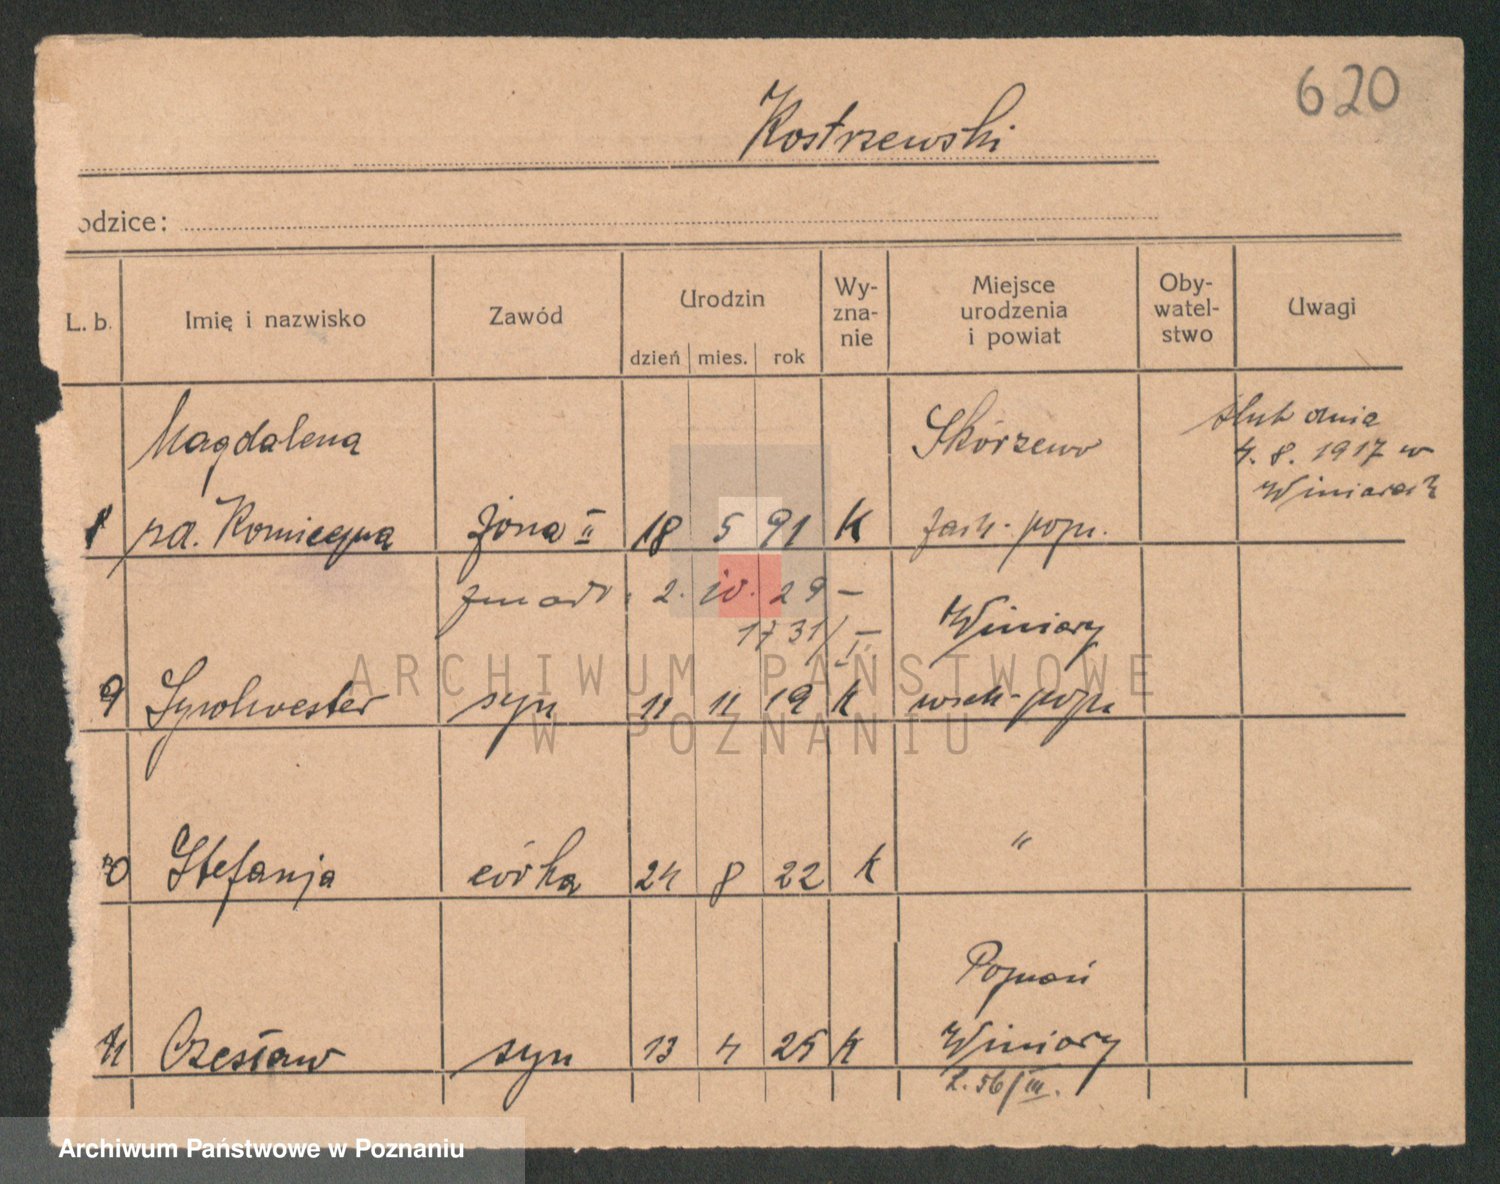 620
Kostrzewski
odzice:
L. b.
Imię i nazwisko
Zawód
Urodzin
dzień mies. rok
Wy-
zna-
nie
Miejsce
urodzenia
i powiat
Oby-
watel-
stwo
Uwagi
Magdalena
Skórzewo
ślub dnia
4. 8. 1917 w
Winiarach
8 zd. Konieczna żona II 18 5 91 K zach. pozn.
zmarł. 2. IV. 29 –
1731/I
Winiary
9 Sylwester syn 11 11 19 K wsch. pozn.
10 Stefanja córka 24 8 22 K "
Poznań
11 Czesław syn 13 4 25 K Winiary
L. 56/III.
ARCHIWUM PAŃSTWOWE
W POZNANIU
Archiwum Państwowe w Poznaniu